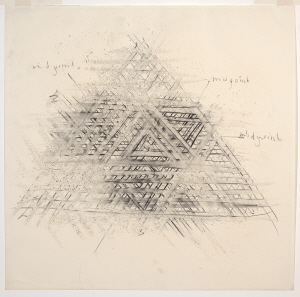 midpoint
midpoint
midpoint